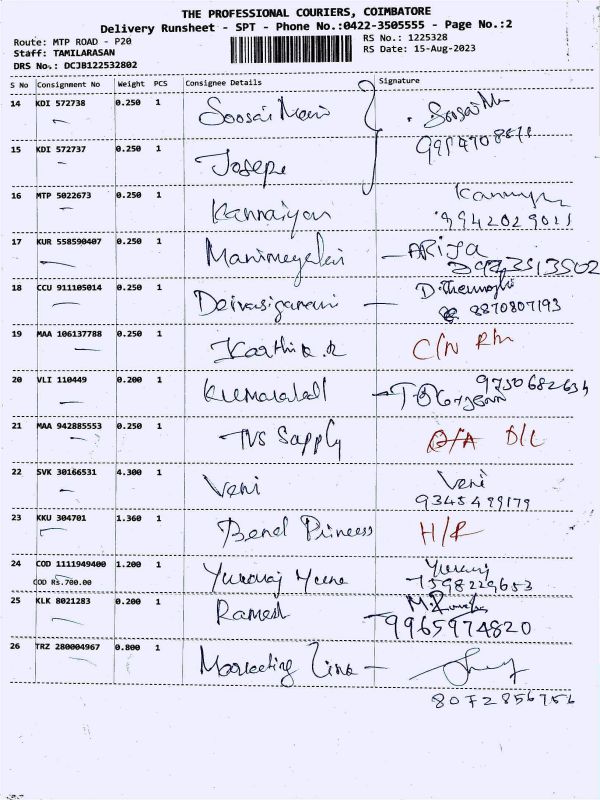 THE PROFESSIONAL COURIERS, COIMBATORE
Delivery Runsheet - SPT - Phone No.:0422-3505555 - Page No.:2
Route: MTP ROAD - P20
RS No.: 1225328
Staff: TAMILARASAN
RS Date: 15-Aug-2023
DRS No.: DCJB122532802
S No Consignment No Weight PCS Consignee Details Signature
14 KDI 572738 0.250 1 Soosai Mari
15 KDI 572737 0.250 1 Joseph
16 MTP 5022673 0.250 1 Kannaiyan
9942029011
17 KUR 558590407 0.250 1 Manimegalai
18 CCU 911105014 0.250 1 Deivasigamani
8870807193
19 MAA 106137788 0.250 1 Karthik.R C/N
20 VLI 110449 0.200 1 9750682634
21 MAA 942885553 0.250 1 TVS Supply D/L
22 SVK 30166531 4.300 1 Veni Veni
9345499179
23 KKU 304701 1.360 1 Princess H/R
24 COD 1111949400 1.200 1 Yuvaraj
COD Rs.700.00 7598229653
25 KLK 8021283 0.200 1 Ramesh
9965974820
26 TRZ 280004967 0.800 1 Marketing
8072856756